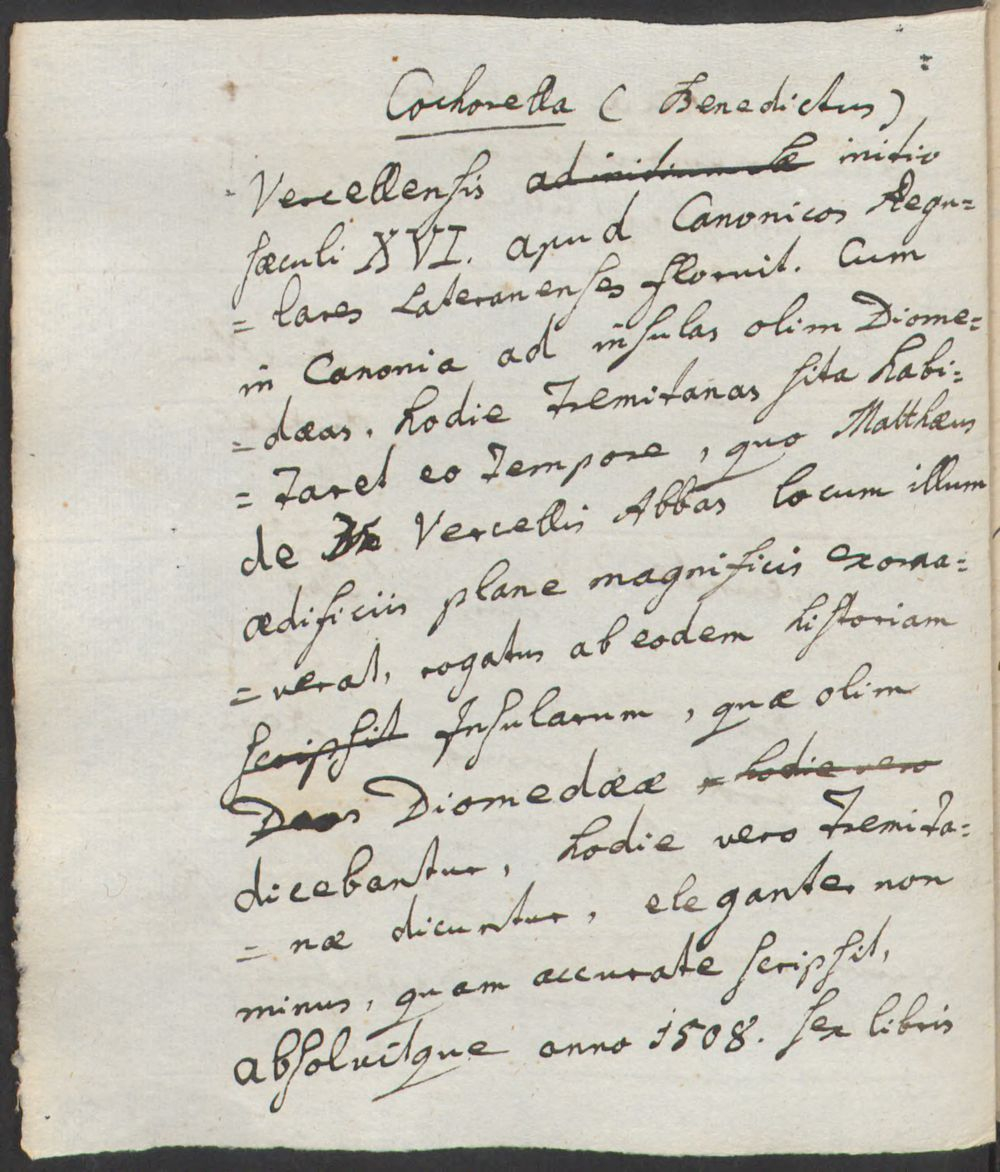 Cochorella ( Benedictus )
Vercellensis ad initium sæ initio
sæculi XVI. apud Canonicos Regu=
= lares Lateranenses floruit. Cum
in Canonia ad insulas olim Diome=
= dæas, hodie Tremitanas sita habi=
= taret eo tempore, quo Matthæus
de Vercellis Abbas locum illum
ædificiis plane magnificis exorna=
= verat, rogatus ab eodem historiam
scripsit Insularum, quæ olim
Diomedææ hodie vero
dicebantur, hodie vero Tremita=
= næ dicuntur, eleganter non
minus, quam accurate scripsit,
absolvitque anno 1508. sex libris